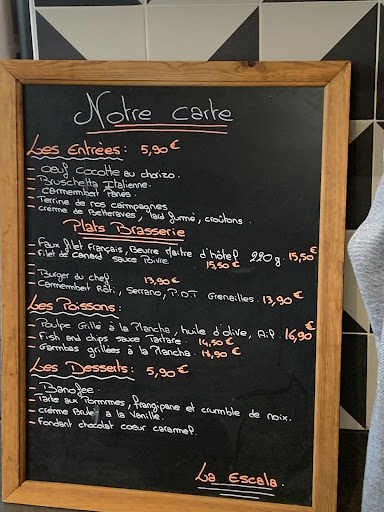 Notre carte
Les Entrées : 5,90€
- oeuf cocotte au chorizo.
- Bruschetta Italienne.
- camembert Panés.
- Terrine de nos campagnes
- crème de Betteraves, lard fumé, croûtons.
Plats Brasserie
- Faux filet Français, Beurre Maître d'hôtel 220g. 15,50€
- Filet de canard sauce Poivre. 15,50€
- Burger du chef 13,90€
- Camembert Rôti, Serrano, P.D.T Grenailles. 13,90€
Les Poissons :
- Poulpe Grillé à la Plancha, huile d'olive, Ail. 16,90€
- Fish and chips sauce Tartare. 14,50€
- Gambas grillées à la Plancha. 14,90€
Les Desserts : 5,90€
- Banofee.
- Tarte aux Pommmes, frangipane et crumble de noix.
- crème Brulé a la Vanille.
- Fondant chocolat coeur caramel.
La Escala.